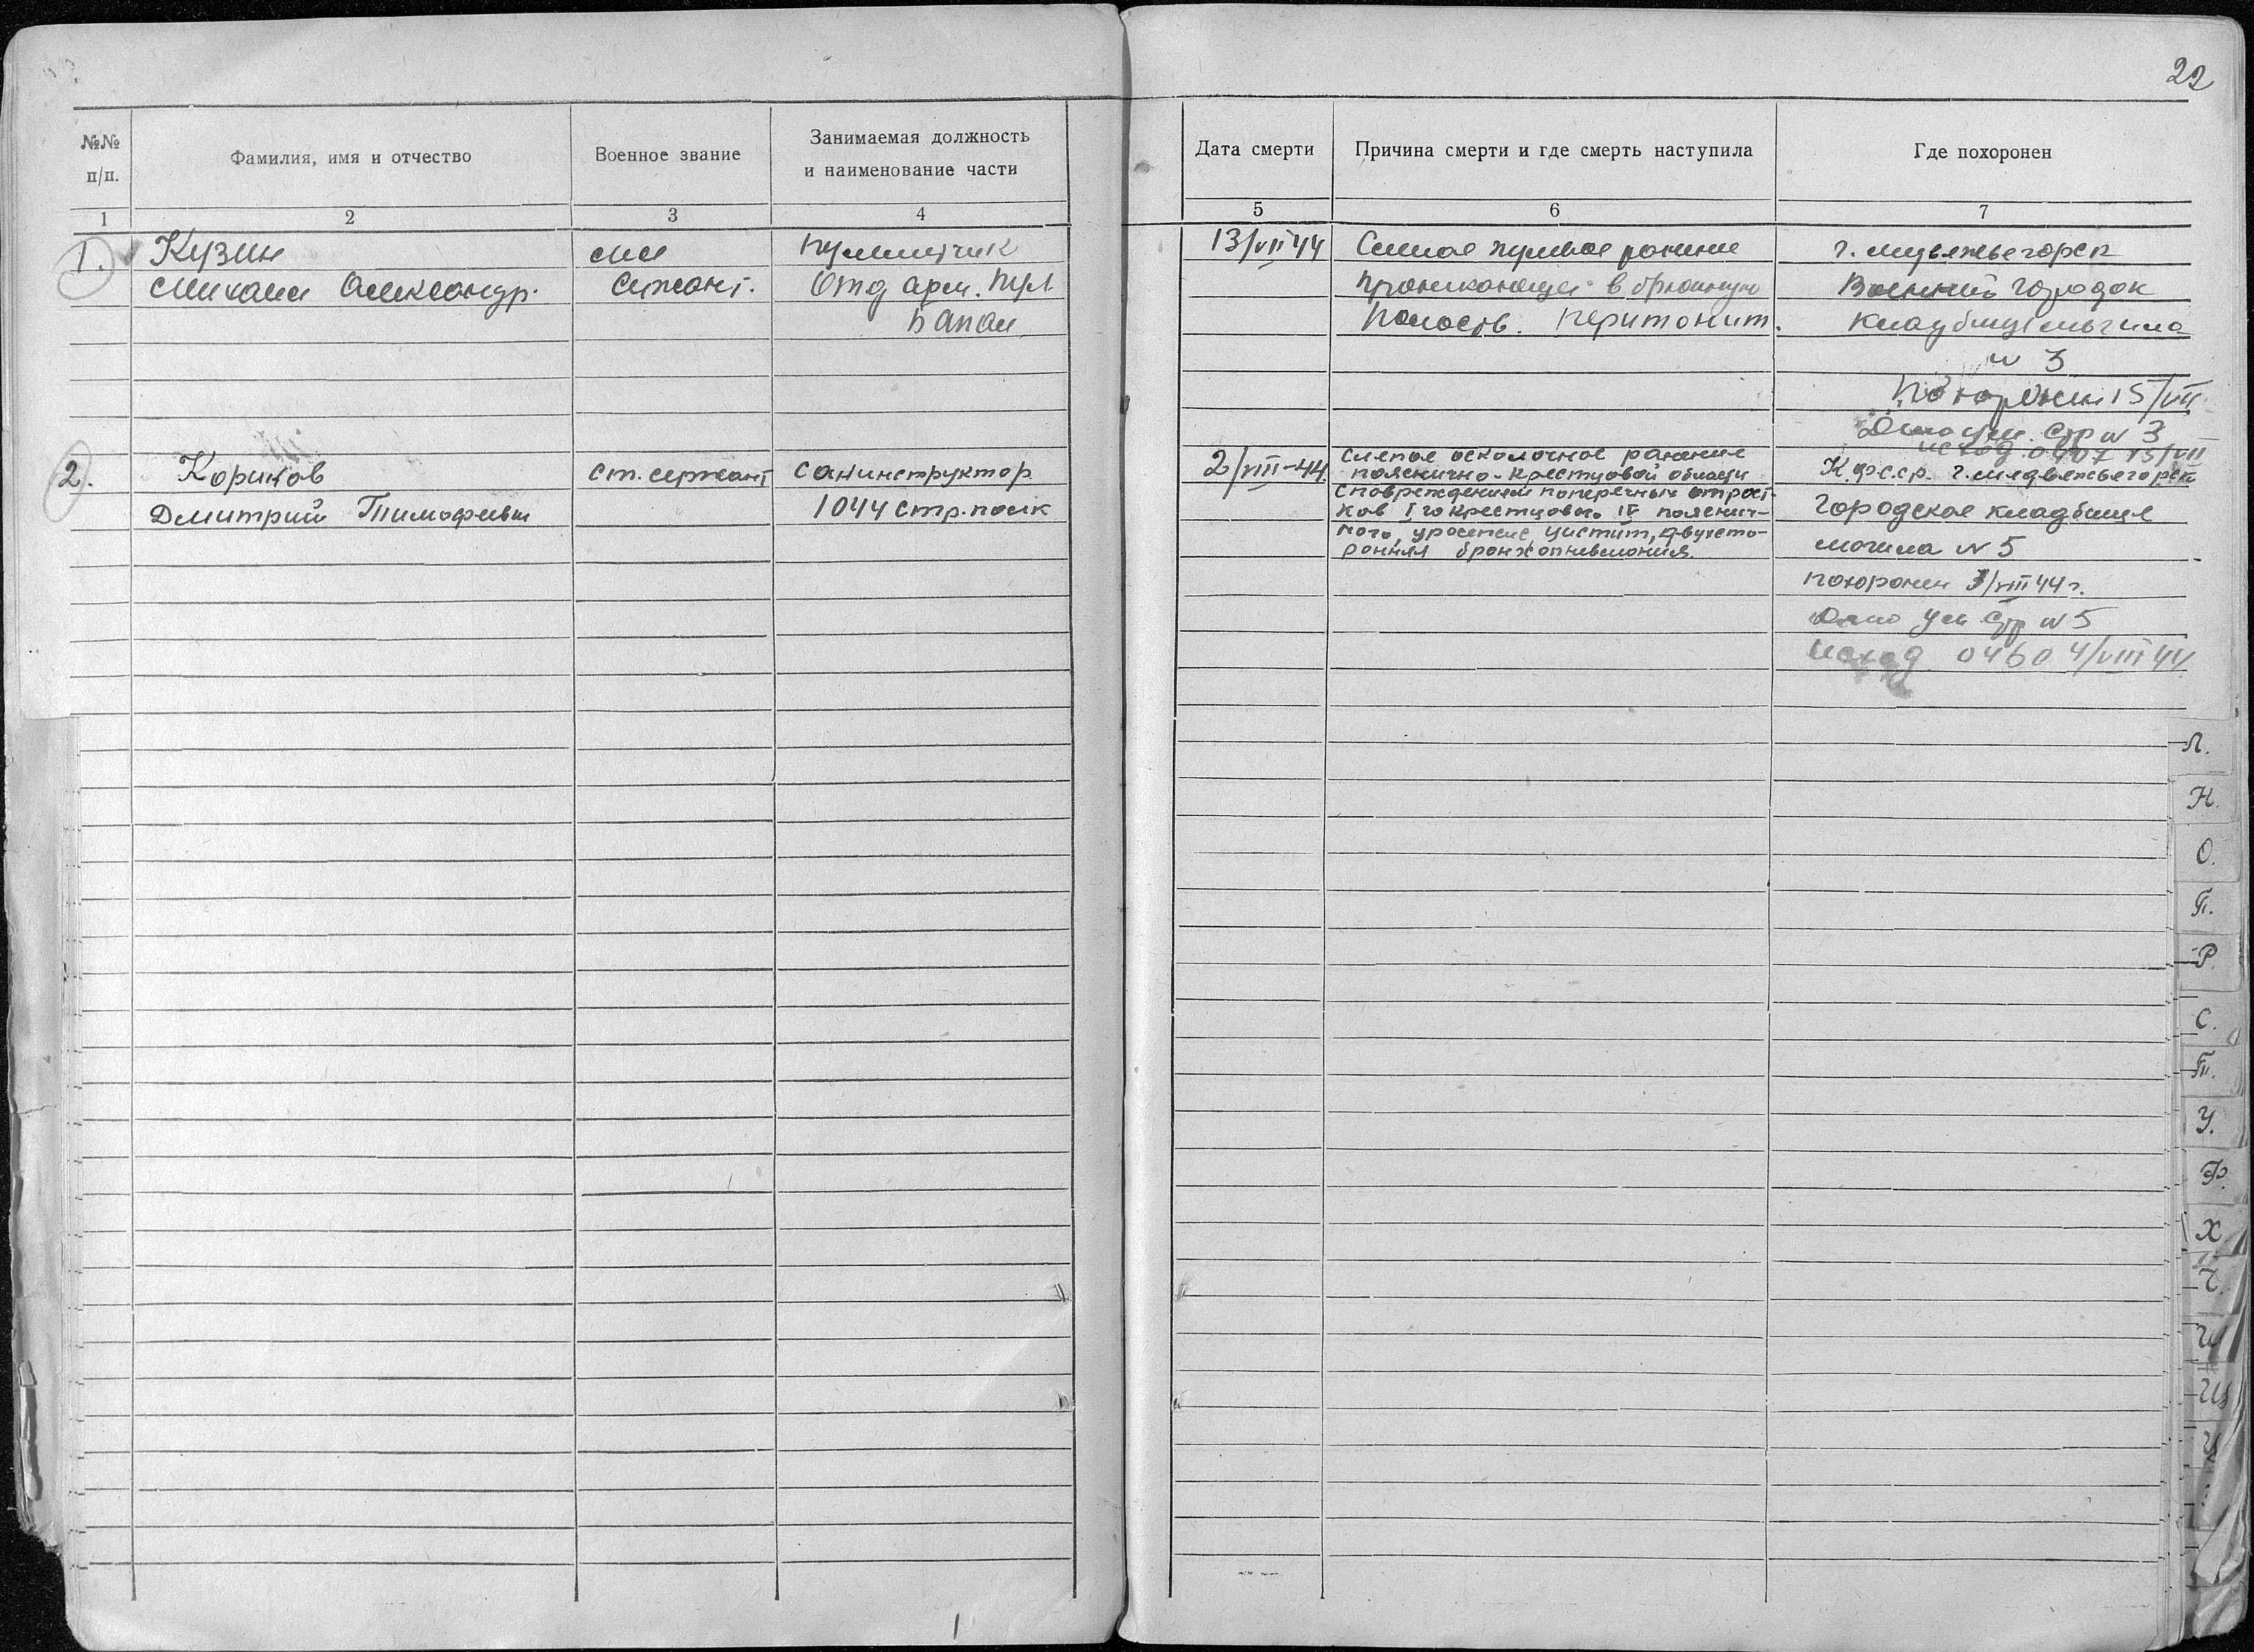 22
№№ п/п.
Фамилия, имя и отчество
Военное звание
Занимаемая должность
и наименование части
Дата смерти
Причина смерти и где смерть наступила
Где похоронен
1 2 3 4 5 6 7
1. Кузин мл пулеметчик 13/VII 44 Слепое пулевое ранение г. Медвежьегорск
Михаил Александр. Сержант. Отд арт. пул проникающее в брюшную Военный городок
батал полость. перитонит. кладбище могила
№ 3
Похоронен 15/VII
Дело ум. стр № 3
исход. 0407 15/VII
2. Кориков ст. сержант санинструктор 2/VIII-44. Слепое осколочное ранение К.ф.ССР. г. Медвежьегорск
пояснично-крестцовой области
Дмитрий Тимофеевич 1044 стр. полк с повреждением поперечных отрост- Городское кладбище
ков I го крестцового IV пояснич-
ного, уросепсис, цистит, двухсто- могила № 5
ронняя бронхопневмония.
похоронен 3/VIII 44 г.
Дело ум стр № 5
Исход. 0460 4/VIII 44
Л.
Н.
О.
П.
Р.
С.
Т.
У.
Ф.
Х.
Ч.
Ш